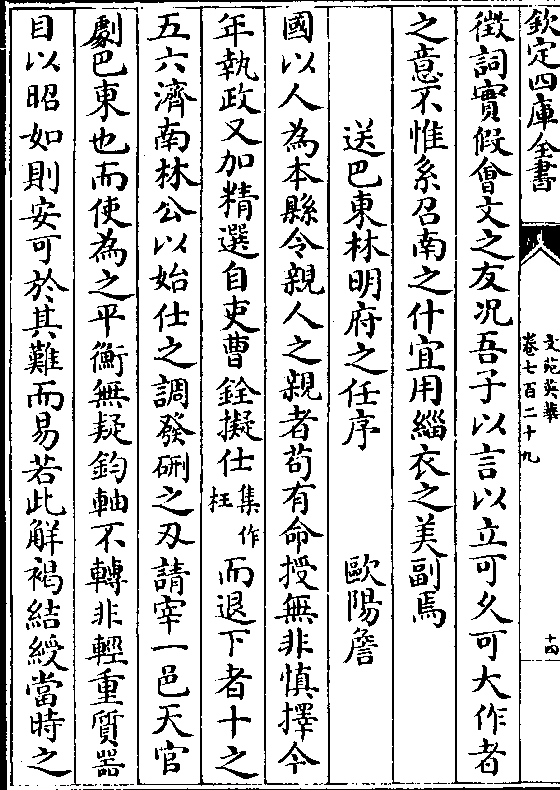 欽定四庫全書
文苑英華
卷七百二十九
十四
徵詞實假會文之友况吾子以言以立可乆可大作者
之意不惟系召南之什宜用緇衣之美副焉
送巴東林明府之任序 歐陽詹
國以人為本縣令親人之親者苟有命授無非慎擇今
年執政又加精選自吏曹銓擬仕集作枉而退下者十之
五六濟南林公以始仕之調發硎之刃請宰一邑天官
劇巴東也而使為之平衡無疑鈞軸不轉非輕重質器
目以昭如則安可於其難而易若此解褐結綬當時之